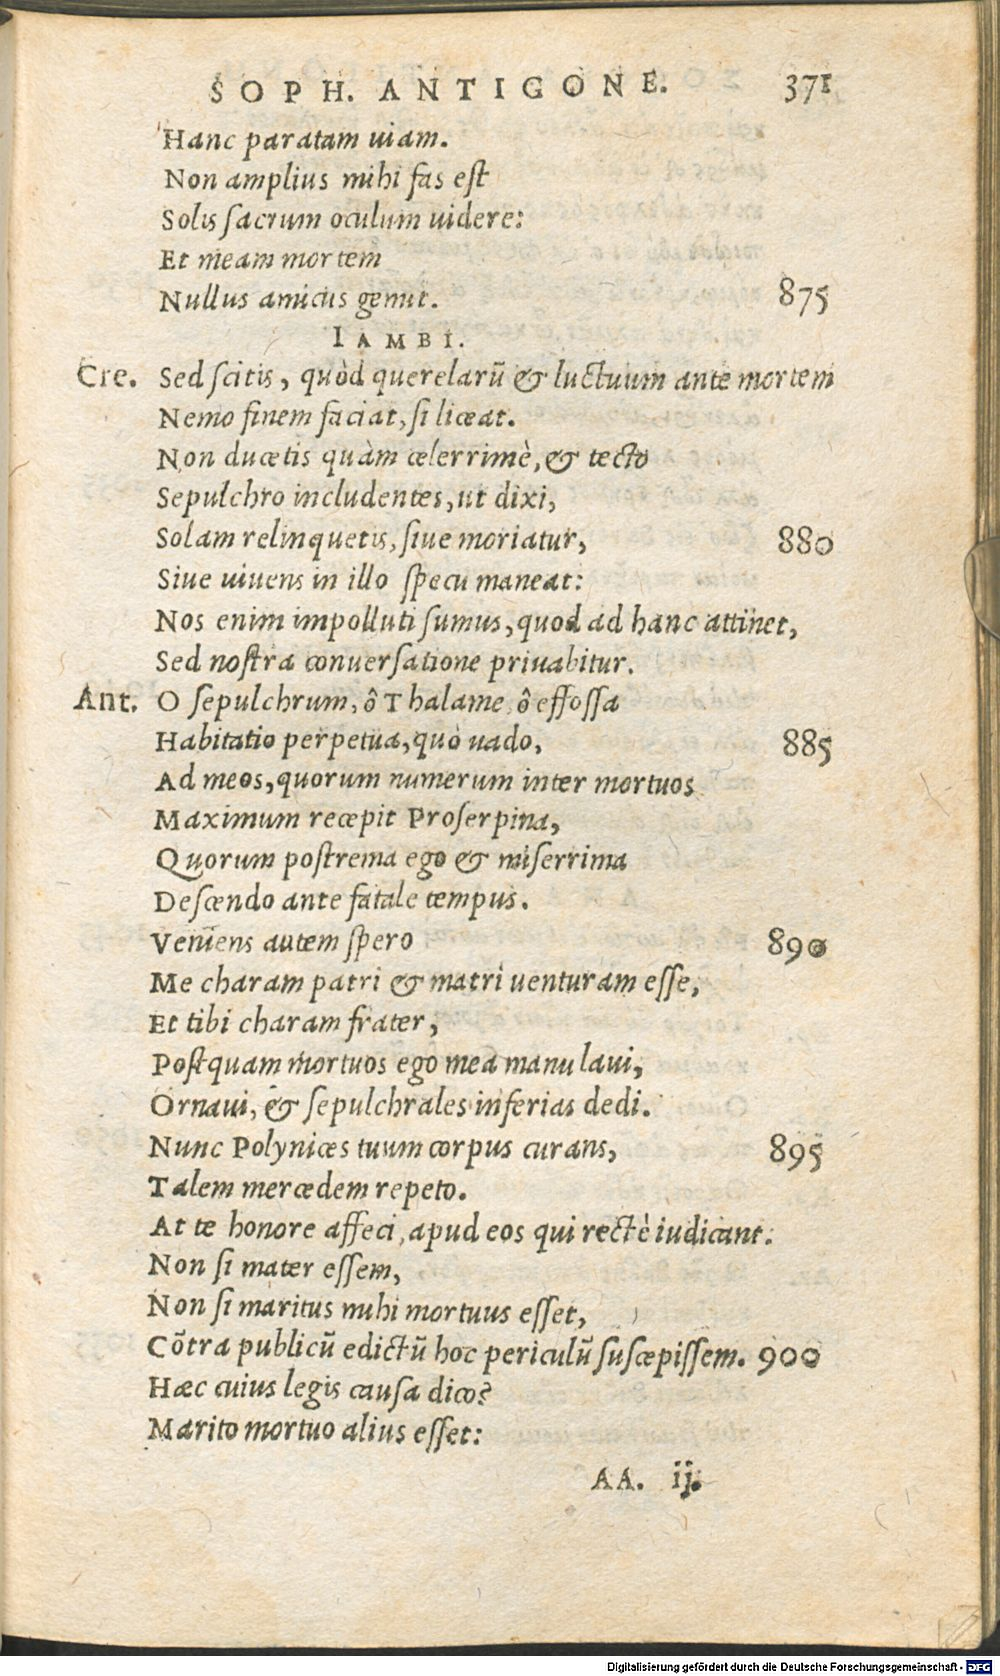 SOPH. ANTIGONE. 371
Hanc paratam uiam.
Non amplius mihi fas est
Solis sacrum oculum uidere:
Et meam mortem
Nullus amicus gemit. 875
IAMBI.
Cre. Sed scitis, quòd querelarū & luctuum ante mortem
Nemo finem faciat, si liceat.
Non ducetis quàm celerrimè, & tecto
Sepulchro includentes, ut dixi,
Solam relinquetis, siue moriatur, 880
Siue uiuens in illo specu maneat:
Nos enim impolluti sumus, quod ad hanc attinet,
Sed nostra conuersatione priuabitur.
Ant. O sepulchrum, ô Thalame, ô effossa
Habitatio perpetua, quò uado, 885
Ad meos, quorum numerum inter mortuos
Maximum recepit Proserpina,
Quorum postrema ego & miserrima
Descendo ante fatale tempus.
Veniens autem spero 890
Me charam patri & matri uenturam esse,
Et tibi charam frater,
Postquam mortuos ego mea manu laui,
Ornaui, & sepulchrales inferias dedi.
Nunc Polynices tuum corpus curans, 895
Talem mercedem repeto.
At te honore affeci, apud eos qui rectè iudicant:
Non si mater essem,
Non si maritus mihi mortuus esset,
Cōtra publicū edictū hoc periculū suscepissem. 900
Hæc cuius legis causa dico?
Marito mortuo alius esset:
AA. ij.
Digitalisierung gefördert durch die Deutsche Forschungsgemeinschaft - DFG